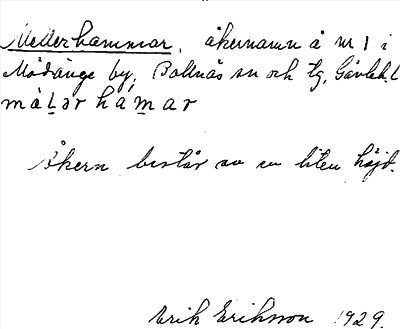 Mellerhammar, åkernamn å nr 1 i
Mödänge by, Bollnäs sn och tg, Gävleb. l
må̀l̲ər hám̲ar
Åkern består av en liten höjd.
Erik Eriksson 1929.